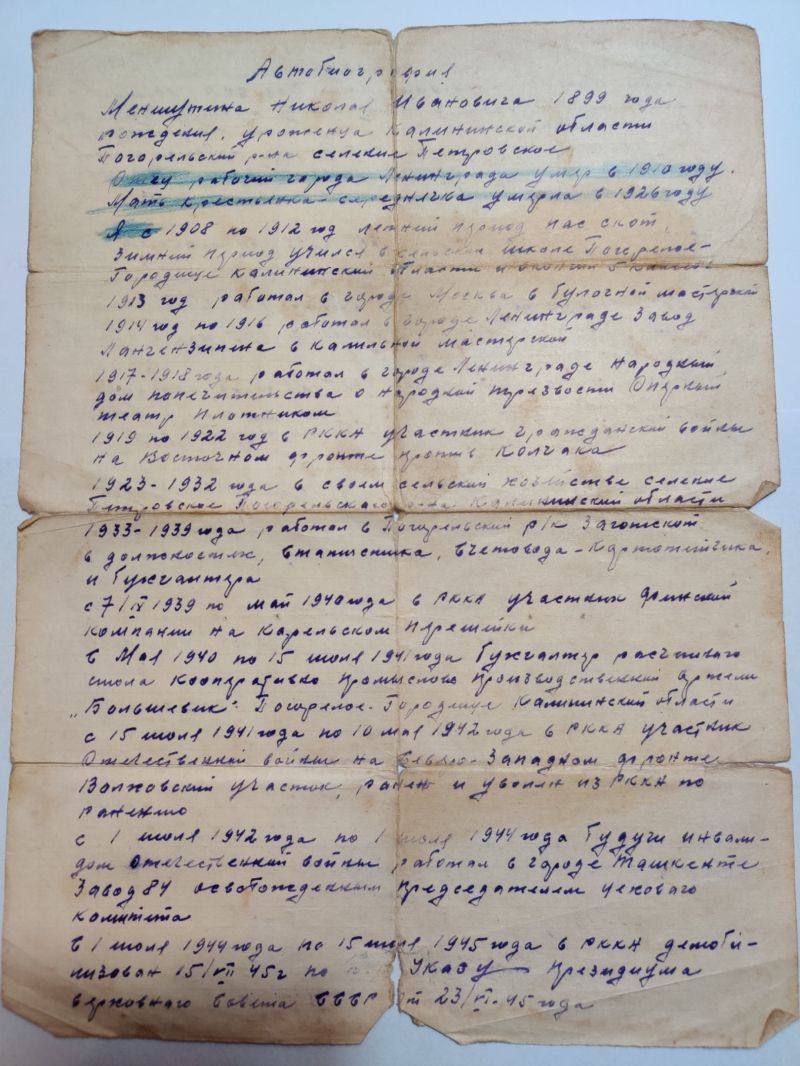 Автобиография
Меншутина Николая Ивановича 1899 года
рождения, уроженца Калининской области
Погорельский р-на селение Петровское
Отец рабочий города Ленинграда умер в 1910 году.
Мать крестьянка середнячка умерла в 1926 году
Я с 1908 по 1912 год летний период пас скот,
Зимний период учился в сельской школе Погорелое-
Городище Калининский области и окончил 5 классов
1913 год работал в городе Москва в булочной мастерской
1914 год по 1916 работал в городе Ленинграде Завод
Лангензипена в паяльной мастерской
1917-1918 года работал в городе Ленинграде Народный
дом попечительства о народной трезвости Оперный
театр Плотником
1919 по 1922 год в РККА участник гражданской войны
на Восточном фронте против Колчака
1923-1932 года в своем сельский хозяйстве селение
Петровское Погорельского р-на Калининский области
1933-1939 года работал в Погорельский р/к Заготской
в должностях, статистика, счетовода-картотетчика,
и бухгалтера
с 7/IX 1939 по май 1940 года в РККА участник финской
компании на Карельском перешейки
в Мая 1940 по 15 июля 1941 года бухгалтер расчетного
стола Кооперативно Промыслово Производственный Артели
„Большевик“ Погорелое-Городище Калининский области
с 15 июля 1941 года по 10 мая 1942 года в РККА участник
Отечественной войны на Северо-Западном фронте
Волховский участок, ранен и уволен из РККА по
ранению
с 1 июля 1942 года по 1 июля 1944 года будучи инвали-
дом отечественный войны работал в городе Ташкенте
Завод 84 освобожденным председателем цехового
комитета
в 1 июля 1944 года по 15 июля 1945 года в РККА демоби-
лизован 15/VII 45г по Указу Президиума
верховного Совета СССР от 23/VI-45 года